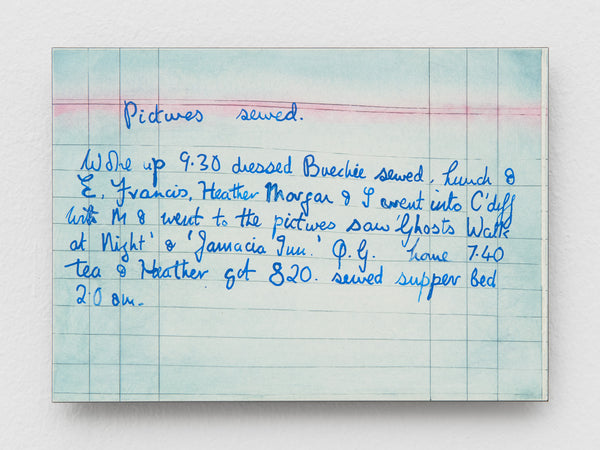 Pictures sewed.
Woke up 9.30 dressed Buechie sewed, lunch &
E. Francis, Heather Morgan & I went into C'diff
with M & went to the pictures saw 'Ghosts Walk
at Night' & 'Jamacia Inn.' Q.G. home 7.40
tea & Heather got 820. sewed supper bed
2.0 am.